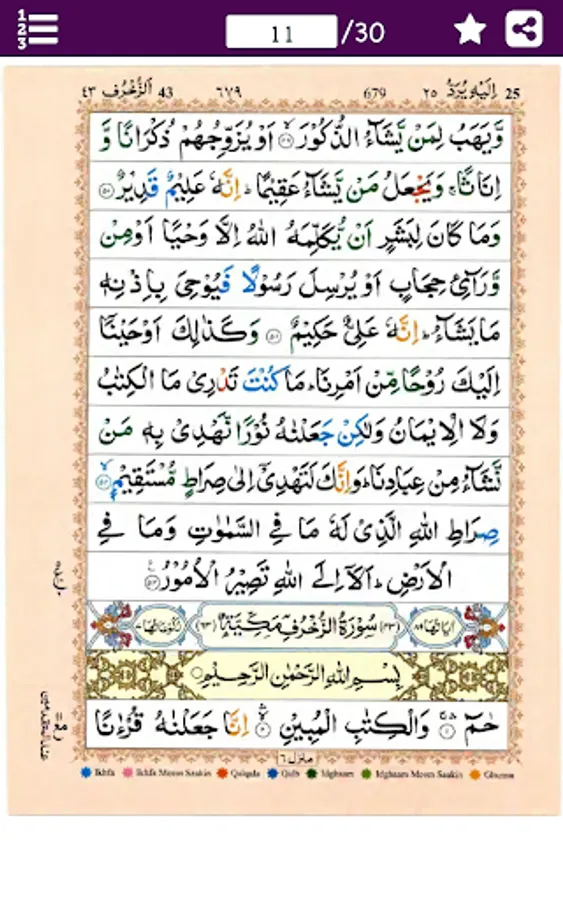 1
2
3
11 /30
٤٣ اَلزُّخْرُف 43 ٦٧٩ 679 اِلَيْهِ يُرَدُّ ٢٥ 25
وَّيَهَبُ لِمَنْ يَّشَآءُ الذُّكُوْرَ ۙ٤٩ اَوْ يُزَوِّجُهُمْ ذُكْرَانًا وَّ
اِنَاثًا ۚ وَيَجْعَلُ مَنْ يَّشَآءُ عَقِيْمًا ؕ اِنَّهٗ عَلِيْمٌ قَدِيْرٌ ٥٠
وَمَا كَانَ لِبَشَرٍ اَنْ يُّكَلِّمَهُ اللّٰهُ اِلَّا وَحْيًا اَوْ مِنْ
وَّرَآئِ حِجَابٍ اَوْ يُرْسِلَ رَسُوْلًا فَيُوْحِيَ بِاِذْنِهٖ
مَا يَشَآءُ ؕ اِنَّهٗ عَلِيٌّ حَكِيْمٌ ٥١ وَكَذٰلِكَ اَوْحَيْنَاۤ
اِلَيْكَ رُوْحًا مِّنْ اَمْرِنَا ؕ مَا كُنْتَ تَدْرِيْ مَا الْكِتٰبُ
وَلَا الْاِيْمَانُ وَلٰكِنْ جَعَلْنٰهُ نُوْرًا نَّهْدِيْ بِهٖ مَنْ
نَّشَآءُ مِنْ عِبَادِنَا ؕ وَاِنَّكَ لَتَهْدِيْۤ اِلٰى صِرَاطٍ مُّسْتَقِيْمٍ ۙ٥٢
صِرَاطِ اللّٰهِ الَّذِيْ لَهٗ مَا فِي السَّمٰوٰتِ وَمَا فِي
الْاَرْضِ ؕ اَلَاۤ اِلَى اللّٰهِ تَصِيْرُ الْاُمُوْرُ ٥٣
اٰيَاتُهَا ٨٩ (٤٣) سُوْرَةُ الزُّخْرُفِ مَكِّيَّةٌ (٦٣) رُكُوْعَاتُهَا ٧
بِسْمِ اللّٰهِ الرَّحْمٰنِ الرَّحِيْمِ
حٰمٓ ۚ١ وَالْكِتٰبِ الْمُبِيْنِ ۙ٢ اِنَّا جَعَلْنٰهُ قُرْءٰنًا
منزل ٦
Ikhfa Ikhfa Meem Saakin Qalqala Qalb Idghaam Idghaam Meem Saakin Ghunna